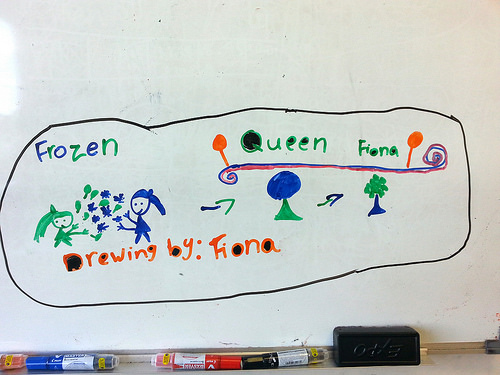 Frozen Queen Fiona
Drewing by: Fiona